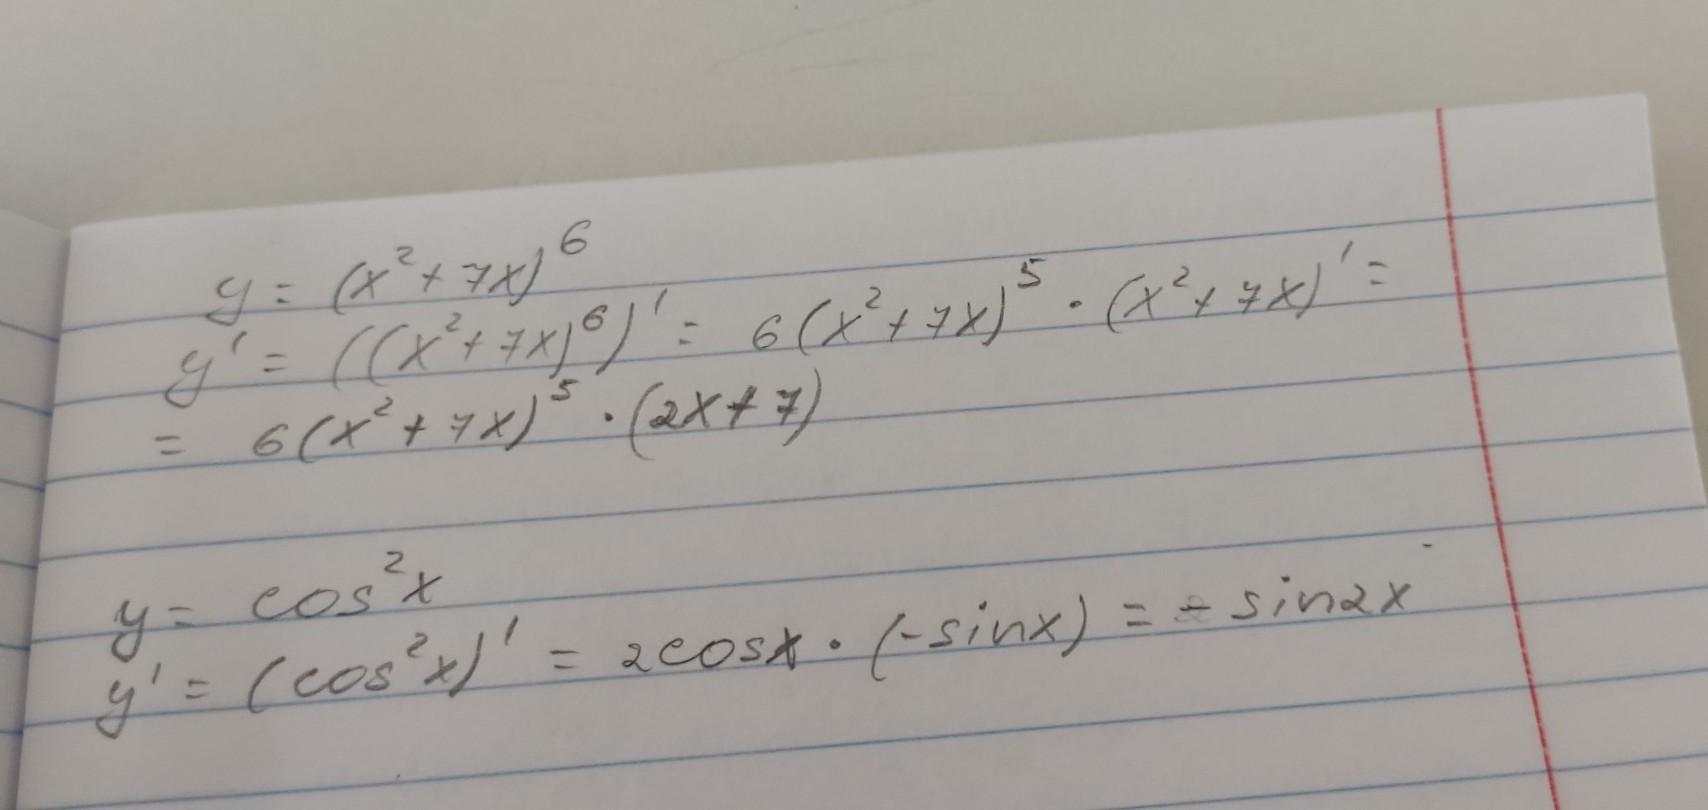 y = (x² + 7x)⁶
y' = ((x² + 7x)⁶)' = 6(x² + 7x)⁵ · (x² + 7x)' =
= 6(x² + 7x)⁵ · (2x + 7)
y = cos²x
y' = (cos²x)' = 2cosx · (-sinx) = - sin2x